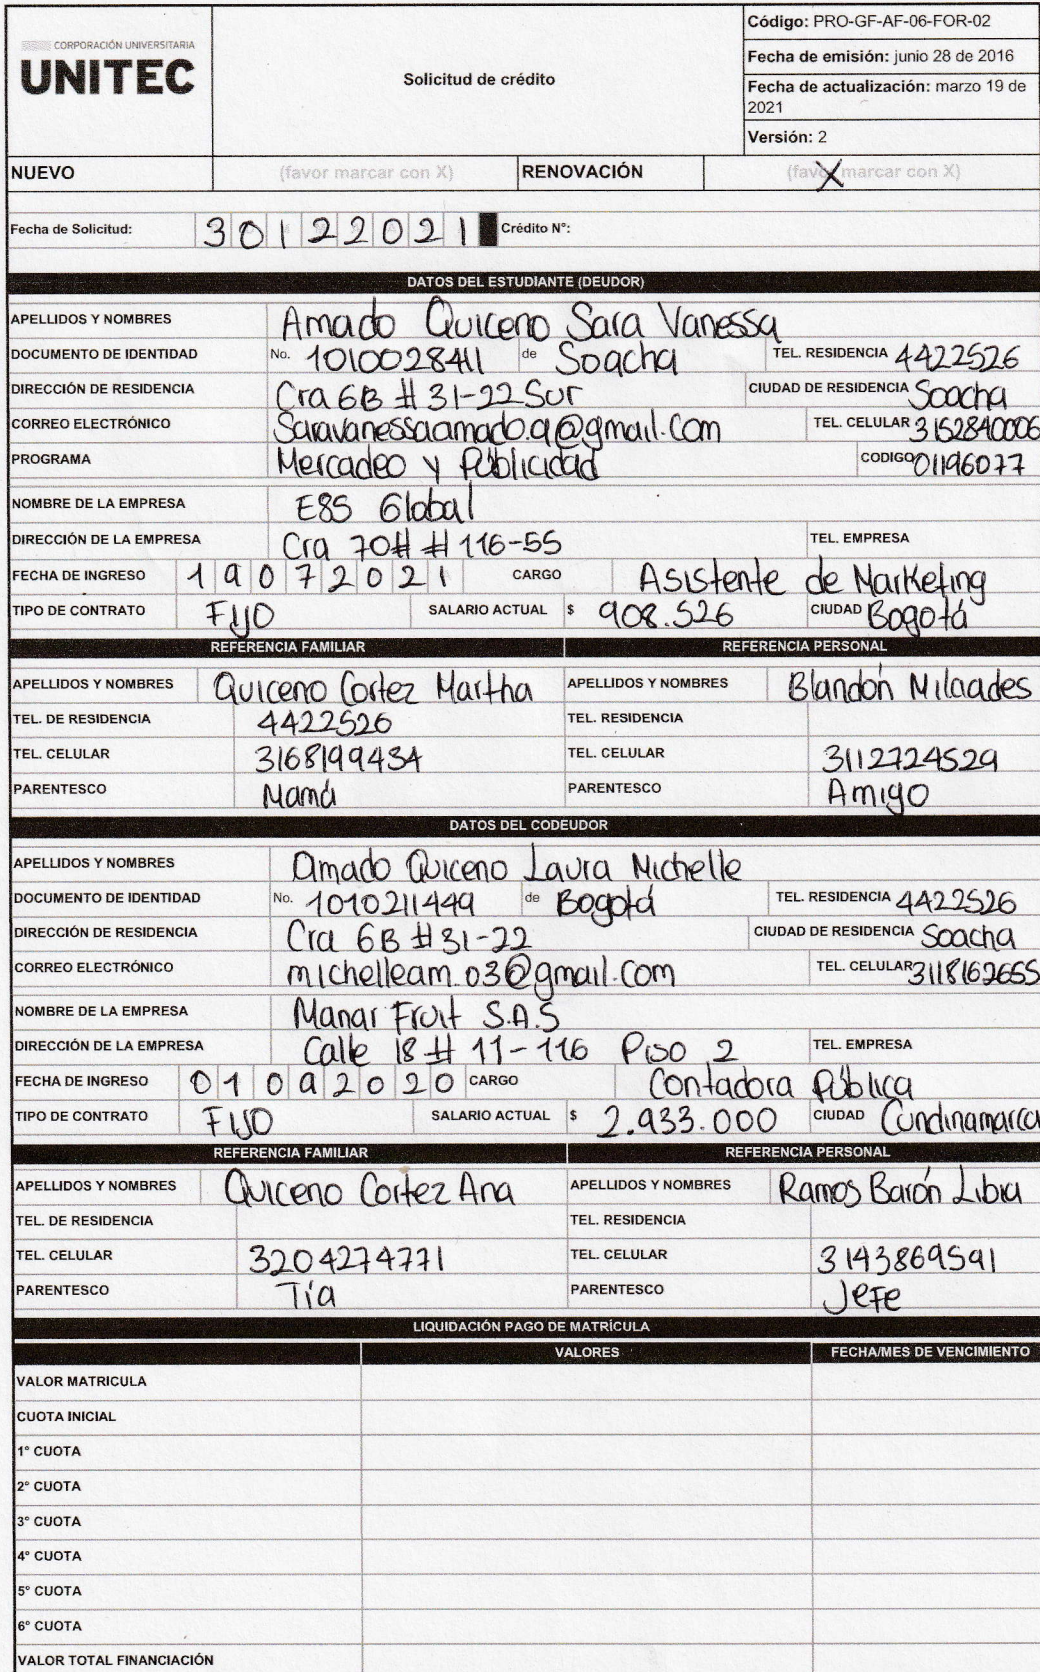 CORPORACIÓN UNIVERSITARIA
UNITEC
Solicitud de crédito
Código: PRO-GF-AF-06-FOR-02
Fecha de emisión: junio 28 de 2016
Fecha de actualización: marzo 19 de
2021
Versión: 2
NUEVO (favor marcar con X) RENOVACIÓN (favor marcar con X) X
Fecha de Solicitud: 30122021 Crédito N°:
DATOS DEL ESTUDIANTE (DEUDOR)
APELLIDOS Y NOMBRES Amado Quiceno Sara Vanessa
DOCUMENTO DE IDENTIDAD No. 1010028411 de Soacha TEL. RESIDENCIA 4422526
DIRECCIÓN DE RESIDENCIA Cra 6B # 31-22 Sur CIUDAD DE RESIDENCIA Soacha
CORREO ELECTRÓNICO Saravanessaamado.q@gmail.com TEL. CELULAR 3152840006
PROGRAMA Mercadeo y Públicidad CODIGO 01196077
NOMBRE DE LA EMPRESA E85 Global
DIRECCIÓN DE LA EMPRESA Cra 70# #116-55 TEL. EMPRESA
FECHA DE INGRESO 19072021 CARGO Asistente de Marketing
TIPO DE CONTRATO Fijo SALARIO ACTUAL $ 908.526 CIUDAD Bogotá
REFERENCIA FAMILIAR REFERENCIA PERSONAL
APELLIDOS Y NOMBRES Quiceno Cortez Martha APELLIDOS Y NOMBRES Blandón Milciades
TEL. DE RESIDENCIA 4422526 TEL. RESIDENCIA
TEL. CELULAR 3168199434 TEL. CELULAR 3112724529
PARENTESCO Mamá PARENTESCO Amigo
DATOS DEL CODEUDOR
APELLIDOS Y NOMBRES Amado Quiceno Laura Michelle
DOCUMENTO DE IDENTIDAD No. 1010211449 de Bogotá TEL. RESIDENCIA 4422526
DIRECCIÓN DE RESIDENCIA Cra 6B #31-22 CIUDAD DE RESIDENCIA Soacha
CORREO ELECTRÓNICO michelleam.03@gmail.com TEL. CELULAR 3118162655
NOMBRE DE LA EMPRESA Manar Fruit S.A.S
DIRECCIÓN DE LA EMPRESA Calle 18 # 11-116 Piso 2 TEL. EMPRESA
FECHA DE INGRESO 01092020 CARGO Contadora Pública
TIPO DE CONTRATO Fijo SALARIO ACTUAL $ 2.933.000 CIUDAD Cundinamarca
REFERENCIA FAMILIAR REFERENCIA PERSONAL
APELLIDOS Y NOMBRES Quiceno Cortez Ana APELLIDOS Y NOMBRES Ramos Barón Libia
TEL. DE RESIDENCIA TEL. RESIDENCIA
TEL. CELULAR 3204274771 TEL. CELULAR 3143869591
PARENTESCO Tía PARENTESCO Jefe
LIQUIDACIÓN PAGO DE MATRÍCULA
VALORES FECHA/MES DE VENCIMIENTO
VALOR MATRICULA
CUOTA INICIAL
1° CUOTA
2° CUOTA
3° CUOTA
4° CUOTA
5° CUOTA
6° CUOTA
VALOR TOTAL FINANCIACIÓN